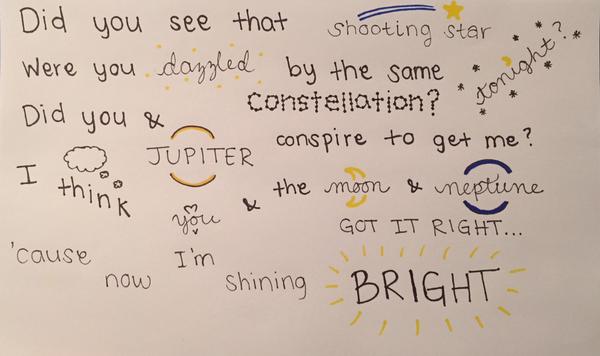 Did you see that shooting star tonight?
Were you dazzled by the same constellation?
Did you & JUPITER conspire to get me?
I think you & the moon & neptune GOT IT RIGHT...
'cause now I'm shining BRIGHT